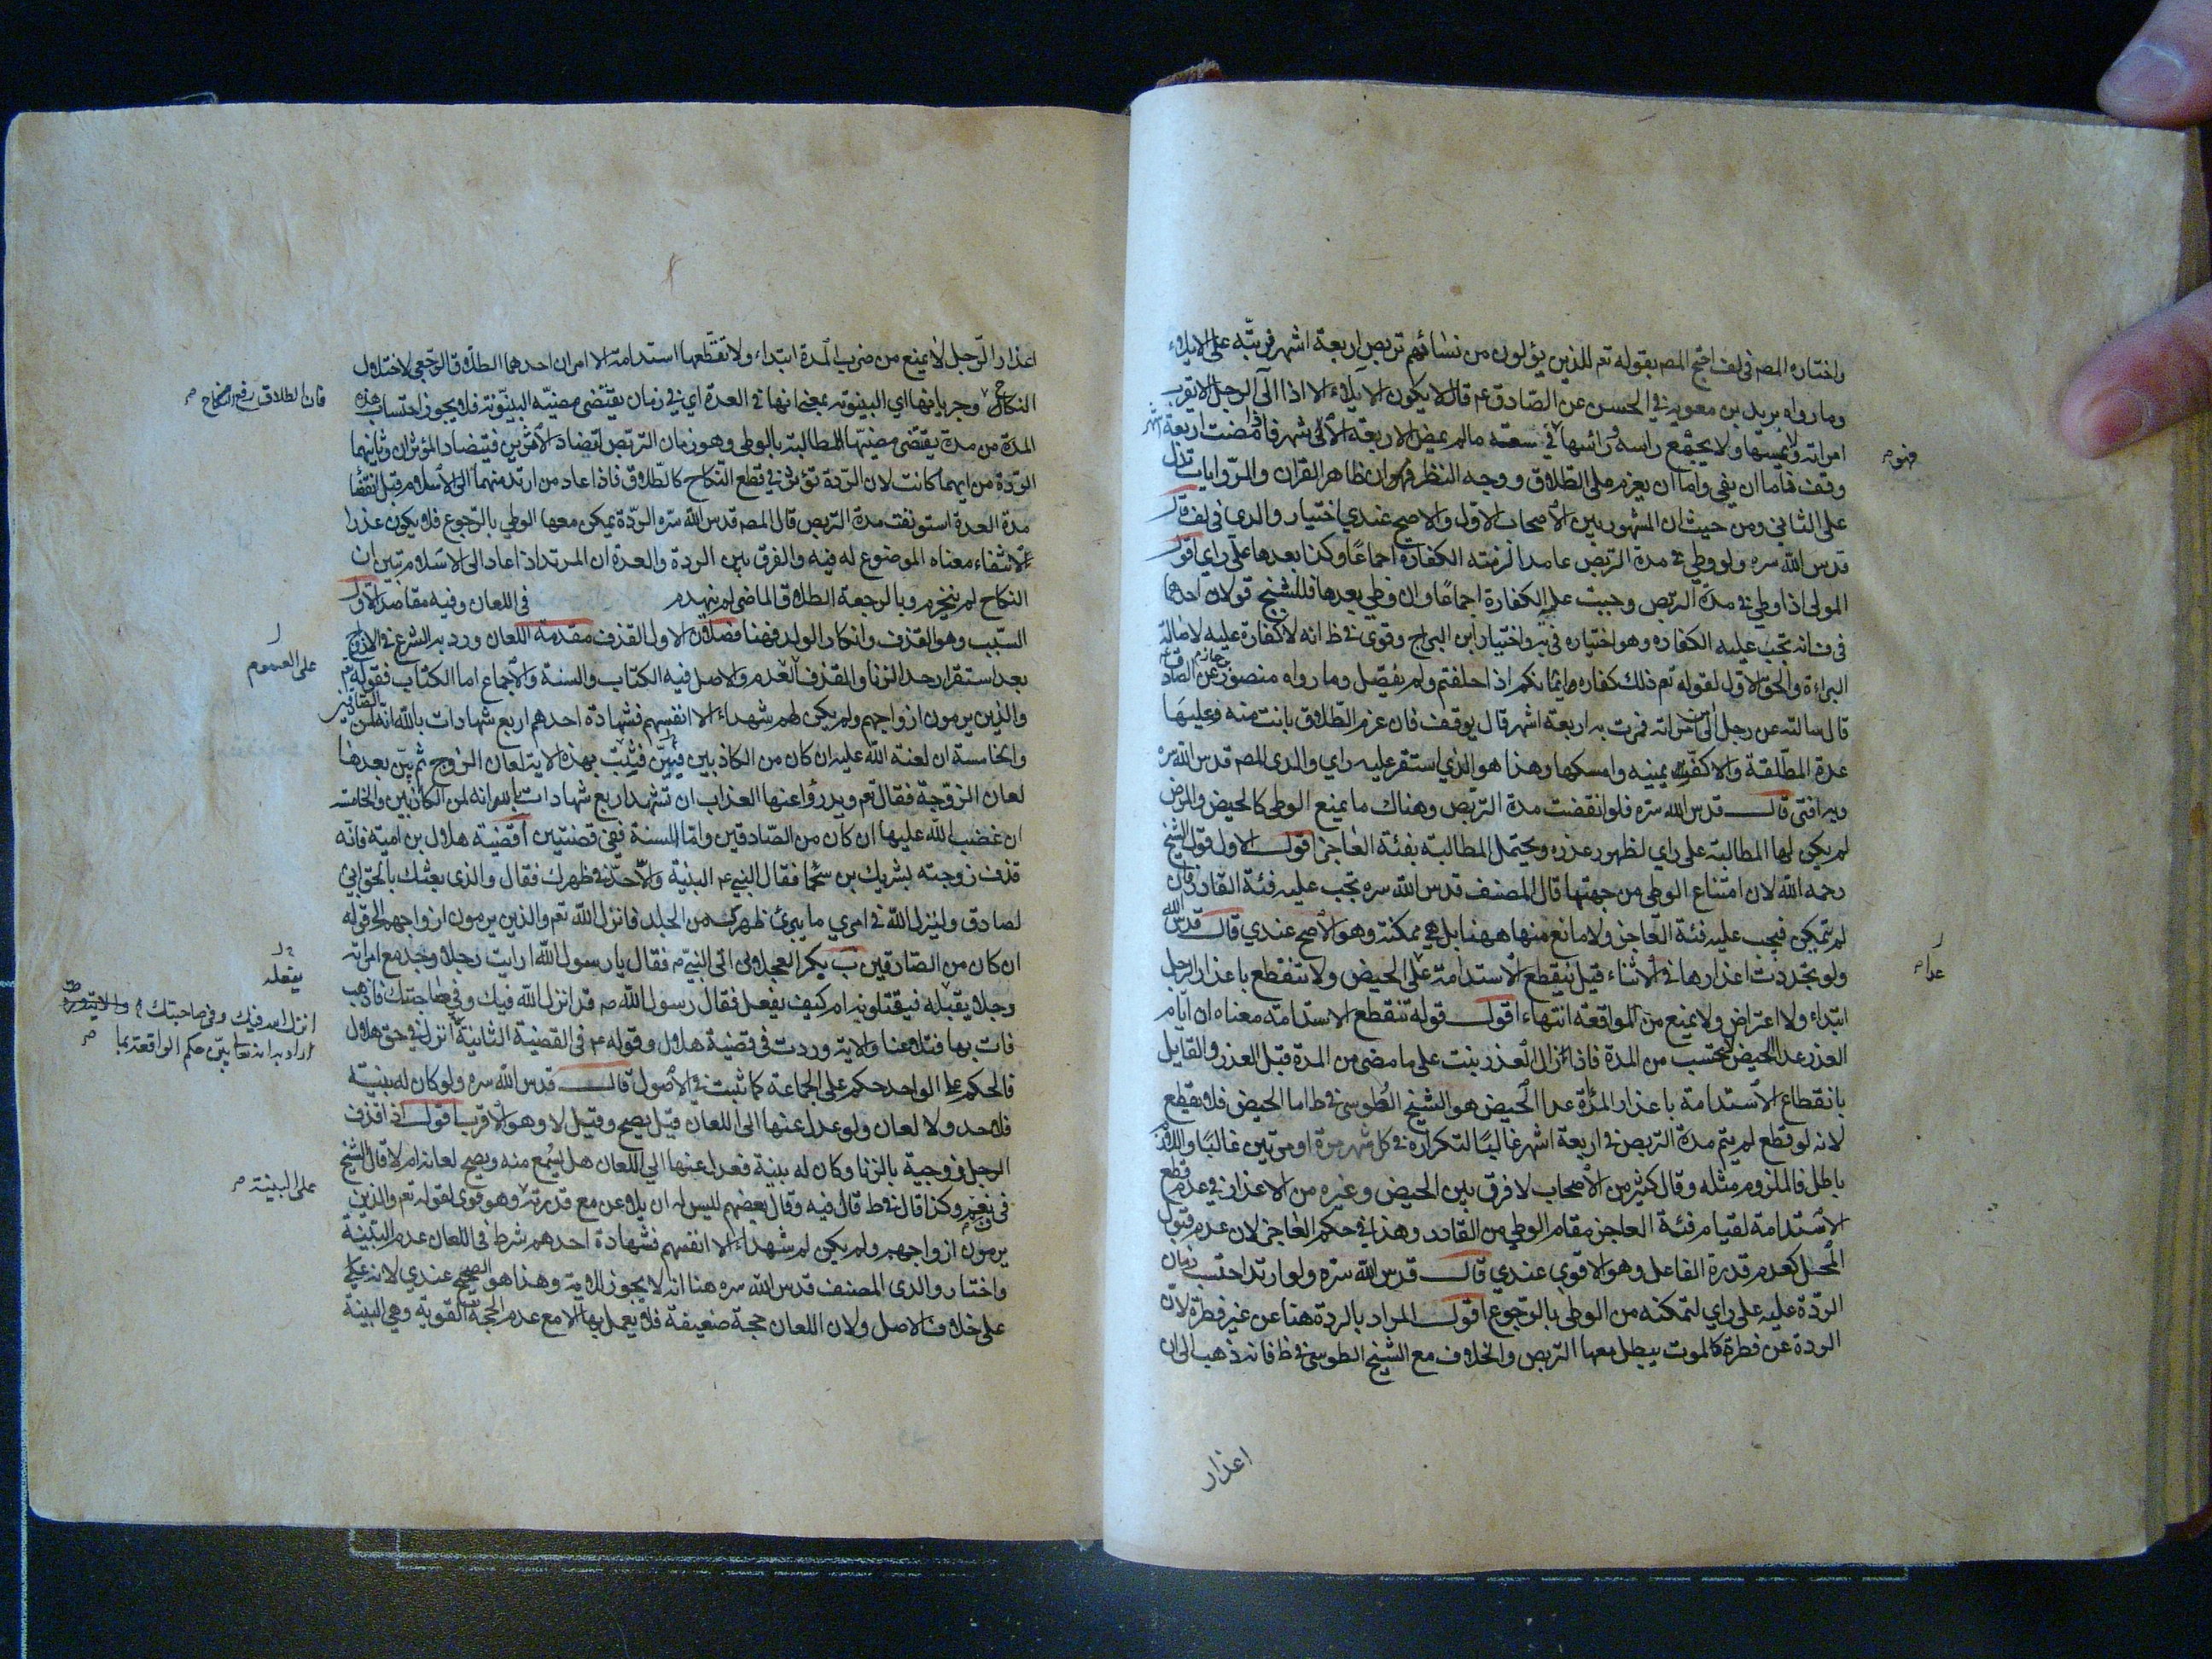 واختاره المصه في لف احتج المصه بقوله تعم للذين يؤلون من نسائهم تربص اربعة اشهر فرتبه على الايلاء
وما رواه بريد بن معوية في الحسن عن الصادق عم قال لا يكون الايلاء الا اذا آلى الرجل الا يقرب
امراته ولا يمسها ولا يجتمع راسه وراسها في سعة ما لم يمض الاربعة الاشهر فاذا مضت اربعة اشهر
وقف فاما ان يفئ واما ان يعزم على الطلاق ووجه النظر فهو ان ظاهر القران والروايات تدل
على الثاني ومن حيث ان المشهور بين الاصحاب الاول والاصح عندي اختيار والدي في لف قال
قدس الله سره ولو وطئ في مدة التربص عامدا لزمته الكفارة اجماعا وكذا بعدها على راي اقول
المولى اذا وطئ في مدة التربص وجبت عليه الكفارة اجماعا وان وطئ بعدها فللشيخ قولان احدهما
في ف انه تجب عليه الكفاره وهو اختياره في يه واختيار ابن البراج وقوى في ط انه لا كفارة عليه لاصالة
البراءة والحق الاول لقوله تعم ذلك كفاره ايمانكم اذا حلفتم ولم يفصل وما رواه منصور بن حازم عن الصادق عم
قال سالته عن رجل الى من امراته فمرت به اربعة اشهر قال يوقف فان عزم الطلاق بانت منه وعليها
عدة المطلقة والا كفر يمينه وامسكها وهذا هو الذي استقر عليه راي والدي المصه قدس الله سره
وبه افتى قال قدس الله سره فلو انقضت مدة التربص وهناك ما يمنع الوطي كالحيض والمرض
لم يكن لها المطالبة على راي لظهور عذره ويحتمل المطالبة بفئة العاجز اقول الاول قول الشيخ
رحمه الله لان امتناع الوطي من جهتها قال المصنف قدس الله سره تجب عليه فئة القادر فان
لم يتمكن فيجب عليه فئة العاجز ولا مانع منها ههنا بل هي ممكنة وهو الاصح عندي قال قدس الله
ولو تجددت اعذارها في الاثناء قيل تنقطع الاستدامة على الحيض ولا تنقطع باعذار الرجل
ابتداء ولا اعتراض ولا يمنع من المواقعة انتهاء اقول قوله تنقطع الاستدامة معناه ان ايام
العذر عدا الحيض لا يحتسب من المدة فاذا زال العذر بنت على ما مضى من المدة قبل العذر والقايل
بانقطاع الاستدامة باعذار المراة عدا الحيض هو الشيخ الطوسي في ط اما الحيض فلا يقطع
لانه لو قطع لم يتم مدة التربص في اربعة اشهر غالبا لتكراره في كل شهر مرة او مرتين غالبا واللازم
باطل فالملزوم مثله وقال كثير من الاصحاب لا فرق بين الحيض وغيره من الاعذار في عدم قطع
الاستدامة لقيام فئة العاجز مقام الوطي من القادر وهذا في حكم العاجز لان عدم قبول
المحل كعدم قدرة الفاعل وهو الاقوى عندي قال قدس الله سره ولو ارتد احتسب زمان
الردة عليه على راي لتمكنه من الوطي بالرجوع اقول المراد بالردة هنا عن غير فطرة لان
الردة عن فطرة كالموت يبطل معها التربص والخلاف مع الشيخ الطوسي في ط فانه ذهب الى ان
اعذار
فهو
عدا
اعذار الرجل لا يمنع من ضرب المدة ابتداء ولا تقطعها استدامة الا امران احدهما الطلاق الرجعي لاختلال
النكاح وجريانها اي البينونة بمعنى انها في العدة اي في زمان يقتضي مضيه البينونة فلا يجوز احتساب هذه
المدة من مدة يقتضي مضيها المطالبة بالوطي وهو زمان التربص لتضاد الاثرين فيتضاد المؤثران وثانيهما
الردة من ايهما كانت لان الردة تؤثر في قطع النكاح كالطلاق فاذا عاد من ارتد منهما الى الاسلام قبل انقضاء
مدة العدة استونفت مدة التربص قال المصه قدس الله سره الردة يمكن معها الوطي بالرجوع فلا يكون عذرا
لانتفاء معناه الموضوع له فيه والفرق بين الردة والعدة ان المرتد اذا عاد الى الاسلام تبين ان
النكاح لم ينخرم وبالرجعة الطلاق الماضي لم ينهدم في اللعان وفيه مقاصد الاول
السبب وهو القذف وانكار الولد فهنا فصلان الاول القذف مقدمة اللعان ورد به الشرع في الازواج
بعد استقرار حد الزنا والقذف والاصل فيه الكتاب والسنة والاجماع اما الكتاب فقوله تعم
والذين يرمون ازواجهم ولم يكن لهم شهداء الا انفسهم فشهادة احدهم اربع شهادات بالله انه لمن الصادقين
والخامسة ان لعنة الله عليه ان كان من الكاذبين فبين فثبت بهذه الاية لعان الزوج ثم بين بعدها
لعان الزوجة فقال تعم ويدرؤا عنها العذاب ان تشهد اربع شهادات بالله انه لمن الكاذبين والخامسة
ان غضب الله عليها ان كان من الصادقين واما السنة ففي قضيتين ا قضية هلال بن امية فانه
قذف زوجته بشريك بن سحما فقال النبي عم البينة والا حد في ظهرك فقال والذي بعثك بالحق اني
لصادق ولينزل الله في امري ما يبرئ ظهري من الجلد فانزل الله تعم والذين يرمون ازواجهم الى قوله
ان كان من الصادقين ب بكر العجلاني اتى النبي ص فقال يا رسول الله ارايت رجلا وجد مع امراته
رجلا يقتله فيقتلونه ام كيف يفعل فقال رسول الله ص قد انزل الله فيك وفي صاحبتك فاذهب
فات بها فتلاعنا والاية وردت في قضية هلال وقوله عم في القضية الثانية انزل في حق هلال
فالحكم على الواحد حكم على الجماعة كما ثبت في الاصول قال قدس الله سره ولو كان له بينة
فلا حد ولا لعان ولو عدل عنها الى اللعان قيل يصح وقيل لا وهو الاقرب اقول اذا قذف
الرجل زوجته بالزنا وكان له بينة فعدل عنها الى اللعان هل يسمع منه ويصح لعانه ام لا قال الشيخ
في ف نعم وكذا قال في ط قال فيه وقال بعضهم ليس له ان يلاعن مع قدرته وهو قوي لقوله تعم والذين
يرمون ازواجهم ولم يكن لهم شهداء الا انفسهم فشهادة احدهم شرط في اللعان عدم البينة
واختار والدي المصنف قدس الله سره هنا انه لا يجوز للاية وهذا هو الصحيح عندي لانه
على خلاف الاصل ولان اللعان حجة ضعيفة فلا يعمل بها الا مع عدم الحجة القوية وهي البينة
فان الطلاق رفع النكاح
على العموم
يقتله
انزل الله فيك وفي صاحبتك
اراد به انه تعا بين حكم الواقعة بما
على البينة